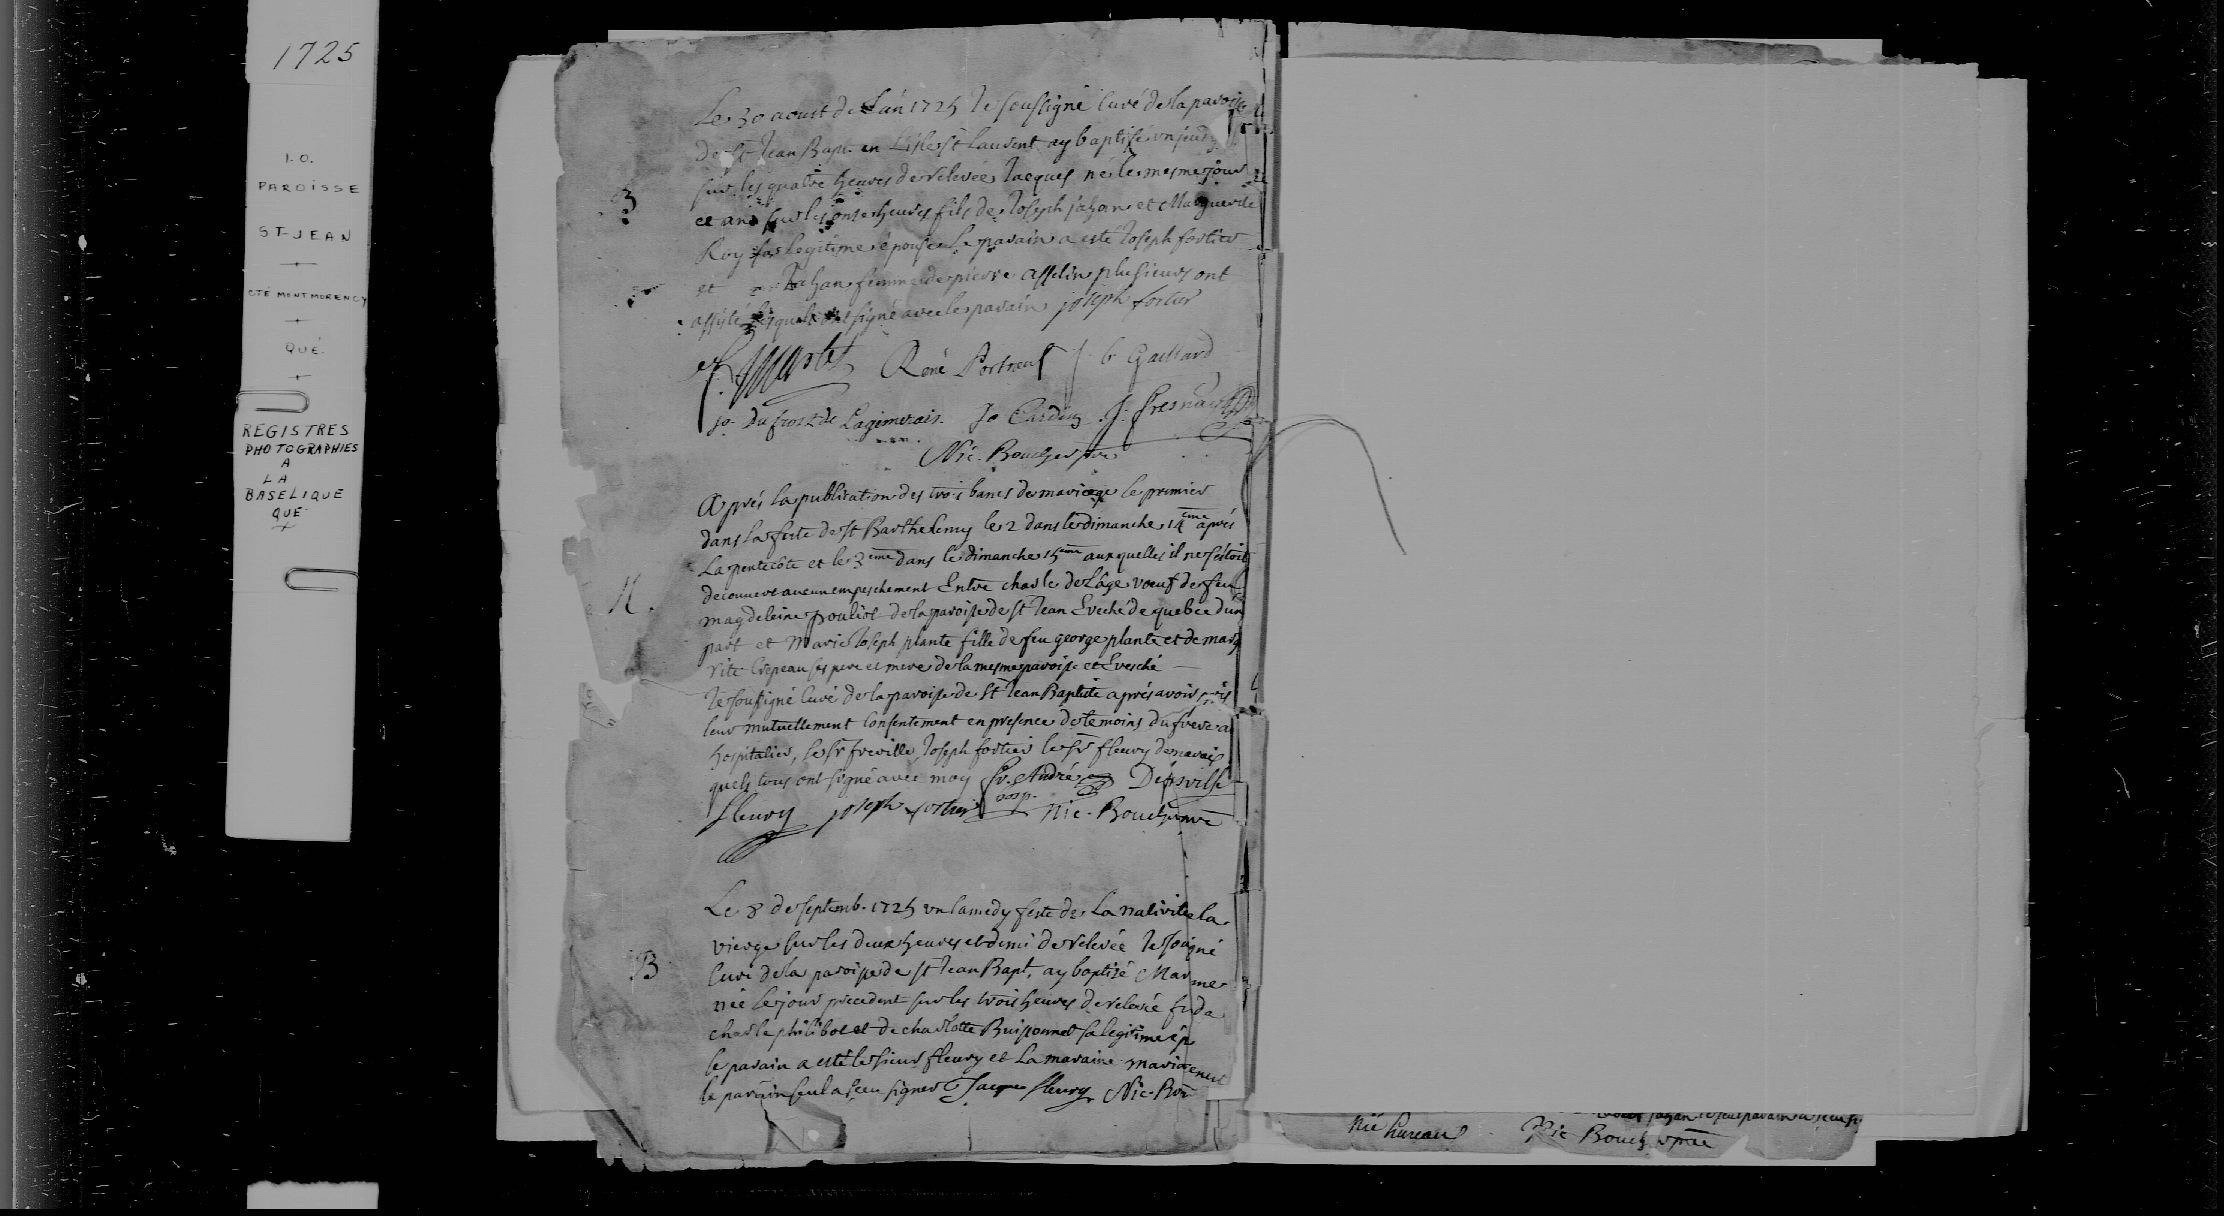 1725
I.O.
PAROISSE
ST-JEAN
CTÉ MONTMORENCY
QUÉ.
REGISTRES
PHOTOGRAPHIES
A
LA
BASELIQUE
QUE
Le 30 aoust de L'an 1725 Je soussigné Curé de la paroisse
de St Jean Bapt. en L'isle St Laurent ay baptisé un jeudy
sur les quatre heures de relevée Jacques né le mesme jour
B
et an sur les onse heures fils de Joseph jahan et Marguerite
Roy sa legitime épouse Le parain a esté Joseph fortier
et Jahan femme de pierre asselin plusieurs ont
assisté lesquels ont signé avec le parain joseph fortier
René Portneuf J. b Gaillard
jo. Dufrost de Lagimerais. Jo Cardin J.
Nic. Boucher ptre
Aprés la publication des trois bancs de mariage le premier
dans la feste de St Barthelemy le 2 dans le dimanche 14eme aprés
La pentecôte et le 3eme dans le dimanche 15eme auxquelles il ne s'estoit
decouvert aucun empeschement Entre charle de L'âge voeuf de feu
M.
magdeleine pouliot de la paroisse de St Jean Evêché de quebec d'un
part et Marie Joseph plante fille de feu george plante et de marg
rite Crepeau ses pere et mere de la mesme paroisse et Evesché
Je sousigné Curé de la paroisse de St Jean Baptiste aprés avoir pris
leur mutuellement Consentement en presence de temoins du frere a
hospitalier, le Sr freville, Joseph fortier le Sr fleury
quels tous ont signé avec moy fr. André
hosp.
fleury joseph fortier Nic. Boucher ptre
Le 8 de septemb. 1725 un samedy feste de La nativite la
vierge sur les deux heures et demi de relevée Je sousigné
B
Curé de la paroisse de St Jean Bapt, ay baptisé
née le jour precedent sur les trois heures de relevée
charle philibot et de charlotte Buissonnet sa legitime ép
le parain a esté le sieur fleury et La maraine
le parain seul a sceu signer Jacque fleury Nic. Bou
Nic Boucher ptre